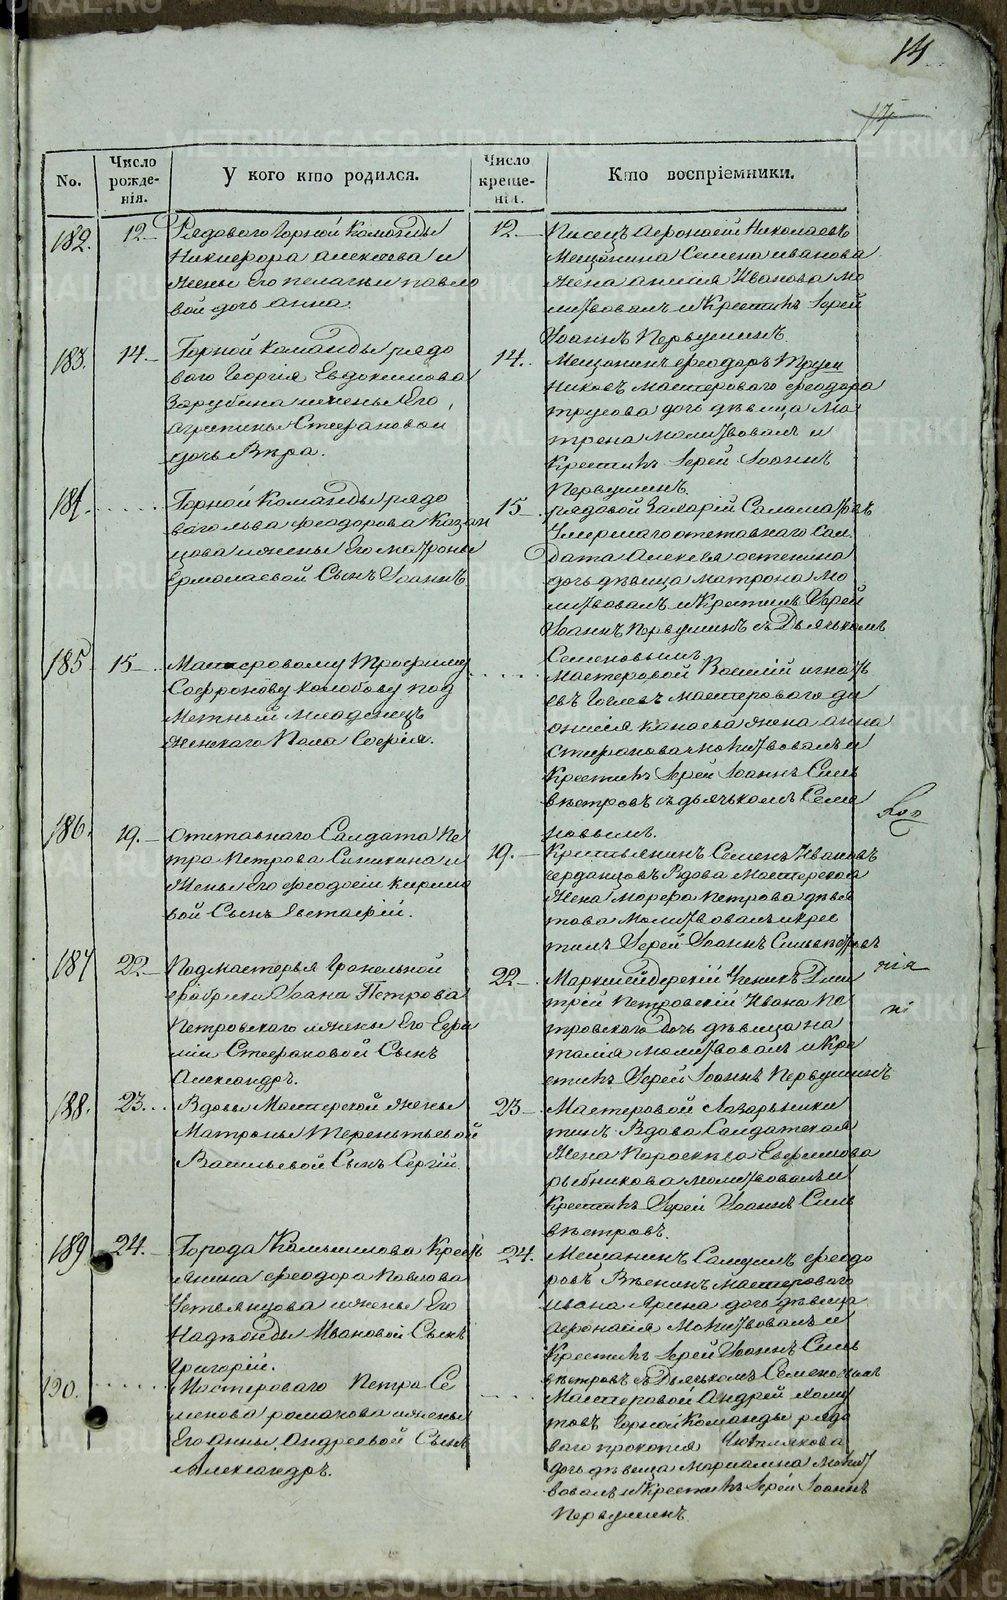 14
17
No.
Число рожде-нія.
У кого кто родился.
Число креще-нія.
Кто воспріемники.
182.
12
Рядоваго Горной Команды
Никифора алексѣева и
Жены Его пелагеи павло
вой дочь анна.
12.
Писецъ Афонасій Николаевъ
Мещанина Семена иванова
Жена Ивановa мо
литвовалъ и Крестилъ Іерей
Іоаннъ Первушинъ.
183.
14.
Горной Команды рядо
ваго Георгія Евдокимова
Зарубина и жены Его
Агрипины Стефановой
дочь Вѣра.
14.
Мещанинъ феодоръ Трусы
никовъ Мастероваго феодора
трусова дочь дѣвица Ма
трена молитвовалъ и
Крестилъ Іерей Іоаннъ
Первушинъ.
184.
Горной Команды рядо
ваго льва феодорова Казан
цова и жены Его матроны
Ермолаевой Сынъ Іоаннъ
15
рядовой Захарій
Умершаго отставнаго Сол
дата Алексѣя остенина
дочь дѣвица матрона мо
литвовалъ и Крестилъ Іерей
Іоаннъ Первушинъ съ Дьячькомъ
Семеновымъ
185
15
Мастеровому Трофиму
Софронову колобову под
Метный младенецъ
Женскаго Пола Софія.
Мастеровой Василій игнать
евъ Гоглевъ мастероваго ди
онисія канаева жена анна
Стефанова молитвовалъ и
Крестилъ Іерей Іоаннъ Силь
вѣстровъ съ дьячькомъ Семе
новымъ.
186.
19.
Отставнаго Салдата Пе
тра Петрова Синицина и
Жены Его феодосіи кирило
вой Сынъ Евстафій.
19.
Крестьянинъ Семенъ Ивановъ
черданцовъ Вдова Мастерская
Жена Марфа Петрова дѣвя
това Молитвовалъ и крес
тилъ Іерей Іоаннъ Сильвѣстровъ
187
22
Подмастерья Гранильной
фабрики Іоана Петрова
Петровскаго и жены Его Евфи
міи Стефановой Сынъ
Александръ.
22
Маркшейдерскій Ученикъ Дми
трій Петровскій Ивана Пе
тровскаго дочь дѣвица на
талія молитвовалъ и Кре
стилъ Іерей Іоаннъ Первушинъ
188.
23
Вдовы Мастерской жены
Матроны Тереньтьевой
Васильевой Сынъ Сергій
23
Мастеровой Лазарь ники
тинъ Вдова Салдатская
Жена Парасковья Евфимова
рыбникова молитвовалъ и
Крестилъ Іерей Іоаннъ Силь
вѣстровъ.
189.
24.
Города Камышлова Кресть
янина феодора Павлова
и жены Его
Надѣжды Ивановой Сынъ
Григорій.
24.
Мещанинъ Самуилъ феодо
ровъ Вяткинъ мастероваго
ивана Ярина дочь дѣвица
Афонасія Молитвовалъ и
Крестилъ Іерей Іоаннъ Силь
вѣстровъ съ Дьячькомъ Семеновымъ
190.
Мастероваго Петра Се
менова романова и жены
Его Анны Андреевой Сынъ
Александръ.
Мастеровой Андрей хому
товъ Горной Команды рядо
ваго прокопія
дочь дѣвица Марианна Молит
вовалъ и Крестилъ Іерей Іоаннъ
Первушинъ
METRIKI.GASO-URAL.RU